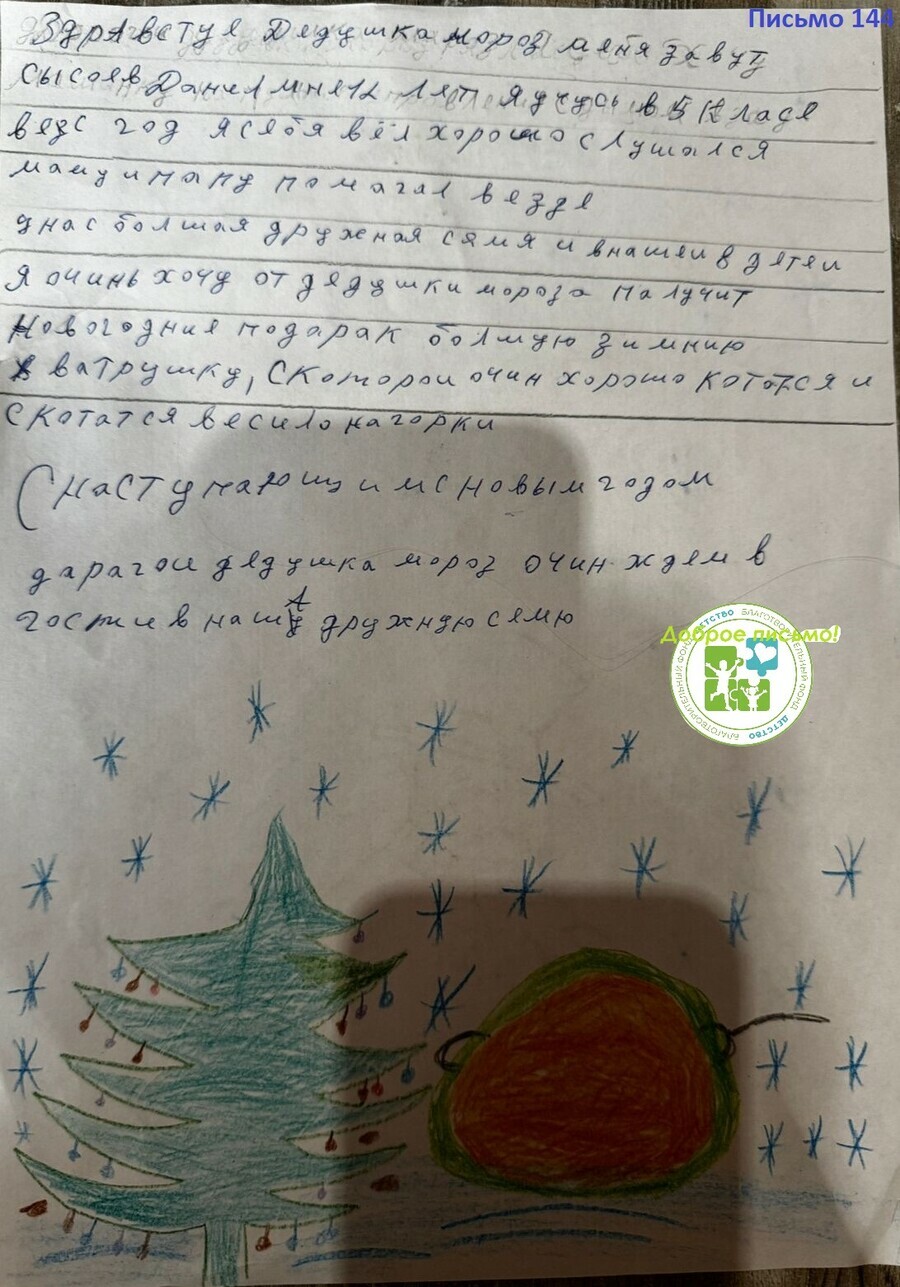 Письмо 144
Здравстуе Дедушка мороз меня завут
Сысоев Данил мне 12 лет я учусь в 5 класе
вес год я себя вёл хорошо слушался
маму и папу помагал везде
у нас болшая дружная семя и в нашеи 8 детеи
я очинь хочу от дядушки мороза палучит
Новогодния подарак болшую зимнию
ватрушку, с которои очин хорошо кататся и
скататся весило на горки
С наступающими с новым годом
дарагои дедушка мороз очин ждем в
гости в нашу дружную семю
Доброе письмо!
БЛАГОТВОРИТЕЛЬНЫЙ ФОНД ДЕТСТВО
БЛАГОТВОРИТЕЛЬНЫЙ ФОНД ДЕТСТВО